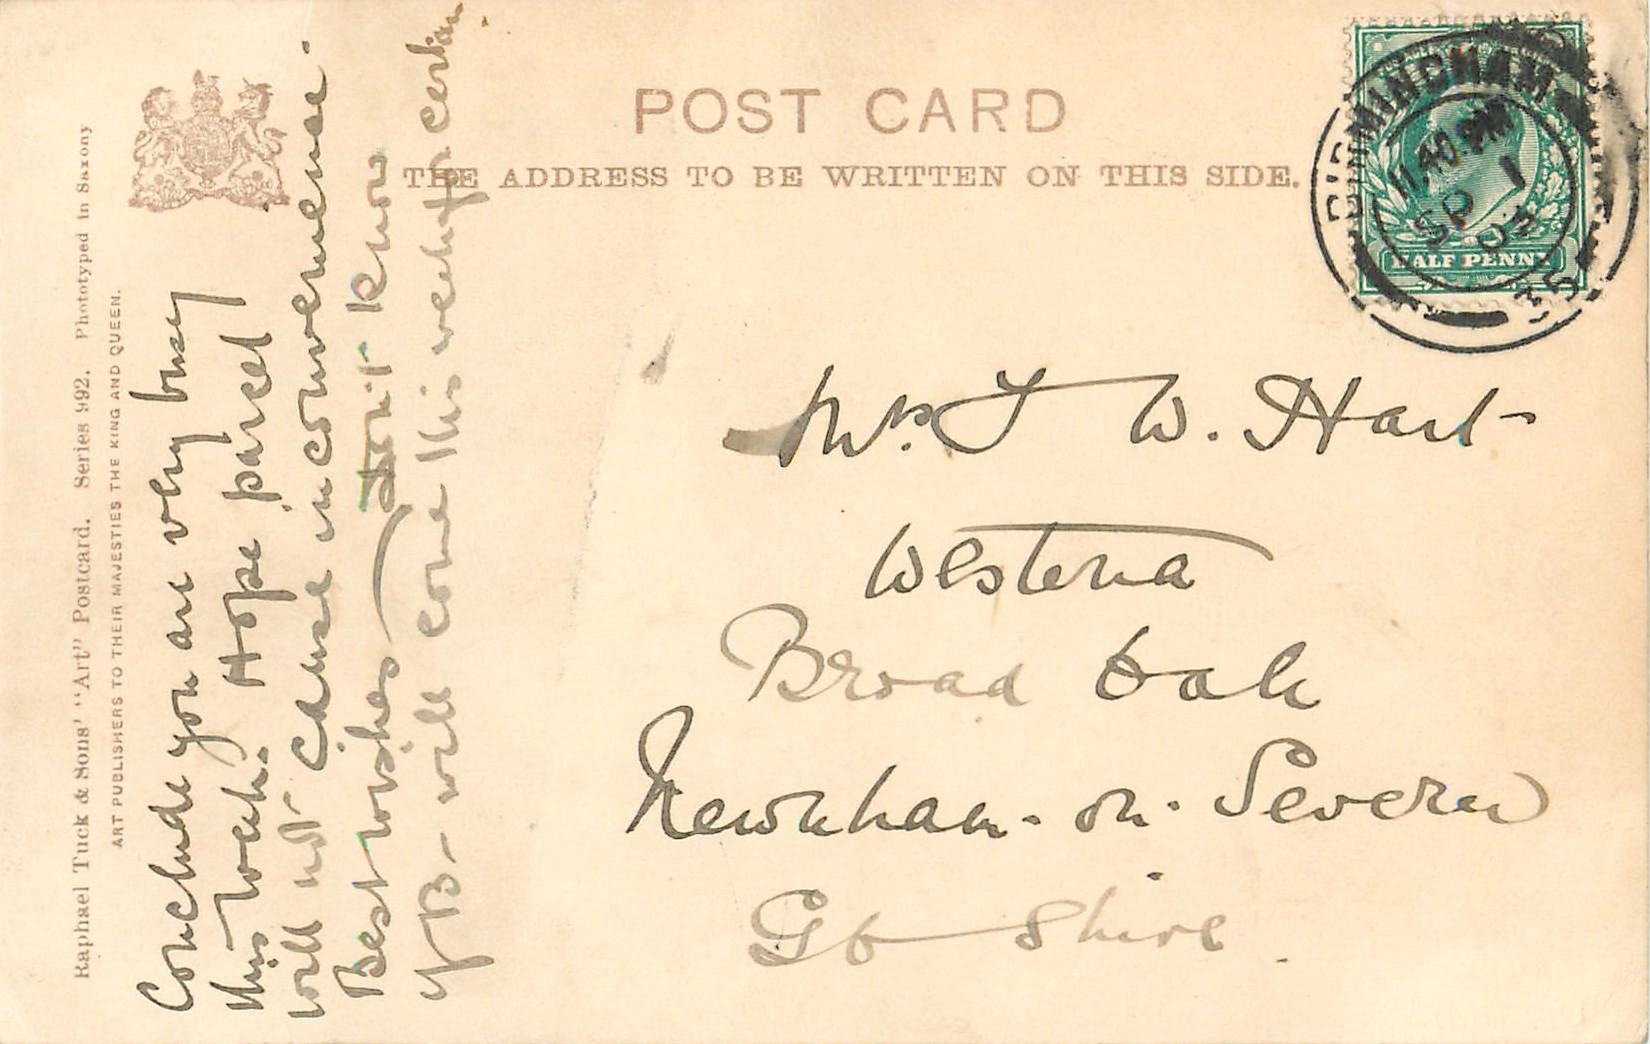 POST CARD
THE ADDRESS TO BE WRITTEN ON THIS SIDE.
Raphael Tuck & Sons' "Art" Postcard. Series 992. Phototyped in Saxony
ART PUBLISHERS TO THEIR MAJESTIES THE KING AND QUEEN.
BIRMINGHAM
11.40 PM
SP 1
03
HALF PENNY
Conclude you are very busy
this week. Hope parcel
will not cause inconvenience.
Best wishes Don't know
if B- will come this week for certain.
Mrs. J W. Hart
Westena
Broad Oak
Newnham-on-Severn
Shire